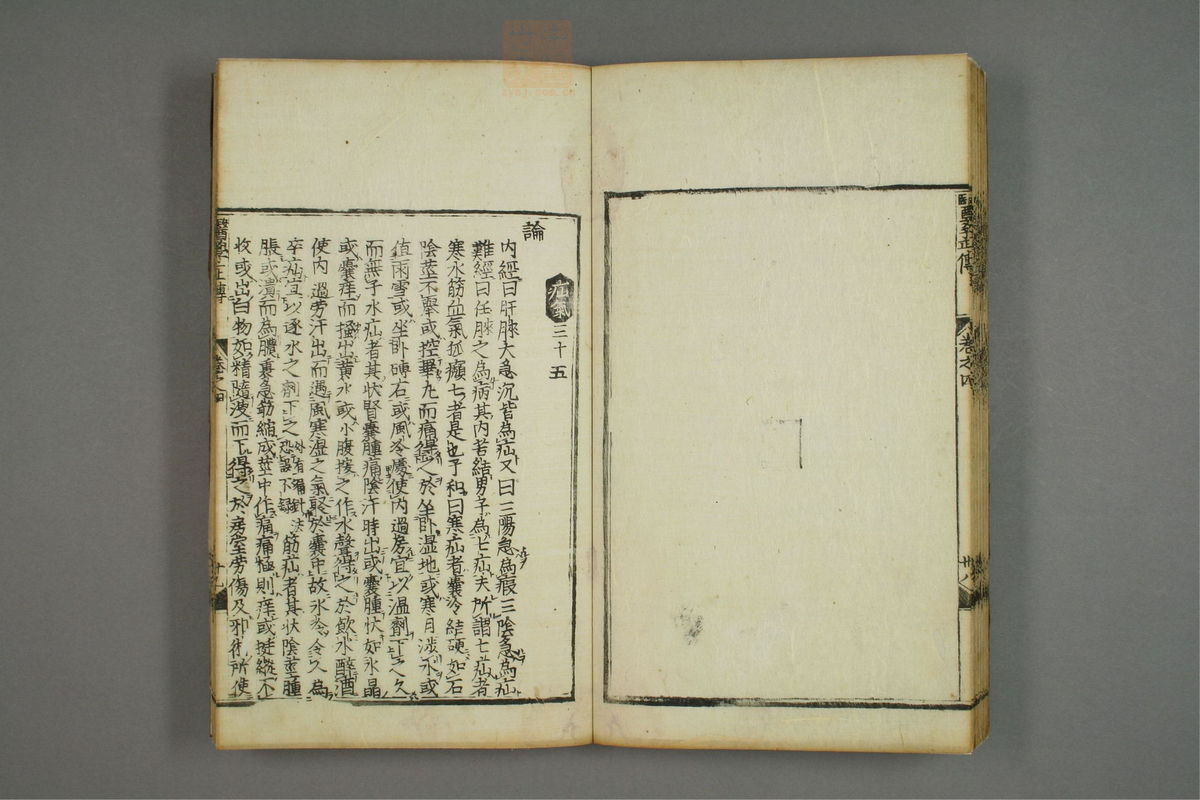 醫學正傳
卷之四
廿八
疝氣三十五
論
內經曰肝脉大急沉皆為疝又曰三陽急為瘕三陰急為疝
難經曰任脉之為病其內苦結男子為七疝夫所謂七疝者
寒水筋血氣狐癩七者是也子和曰寒疝者囊冷結硬如石
陰莖不舉或控睪丸而痛得之於坐卧湿地或寒月涉水或
值雨雪或坐卧磚石或風冷處使內過房宜以温劑下之久
而無子水疝者其狀腎囊腫痛陰汗時出或囊腫状如水晶
或囊痒而搔出黃水或小腹按之作水聲得之於飲水醉酒
使內過勞汗出而遇風寒湿之氣聚於囊中故水冷令人為
卒疝宜以逐水之劑下之外有漏針法恐誤不録筋疝者其状陰莖腫
脹或潰而為膿裏急筋縮或莖中作痛痛極則痒或挺縱不
收或出白物如精隨溲而下得之於房室勞傷及邪術所使
醫學正傳
卷之四
廿九